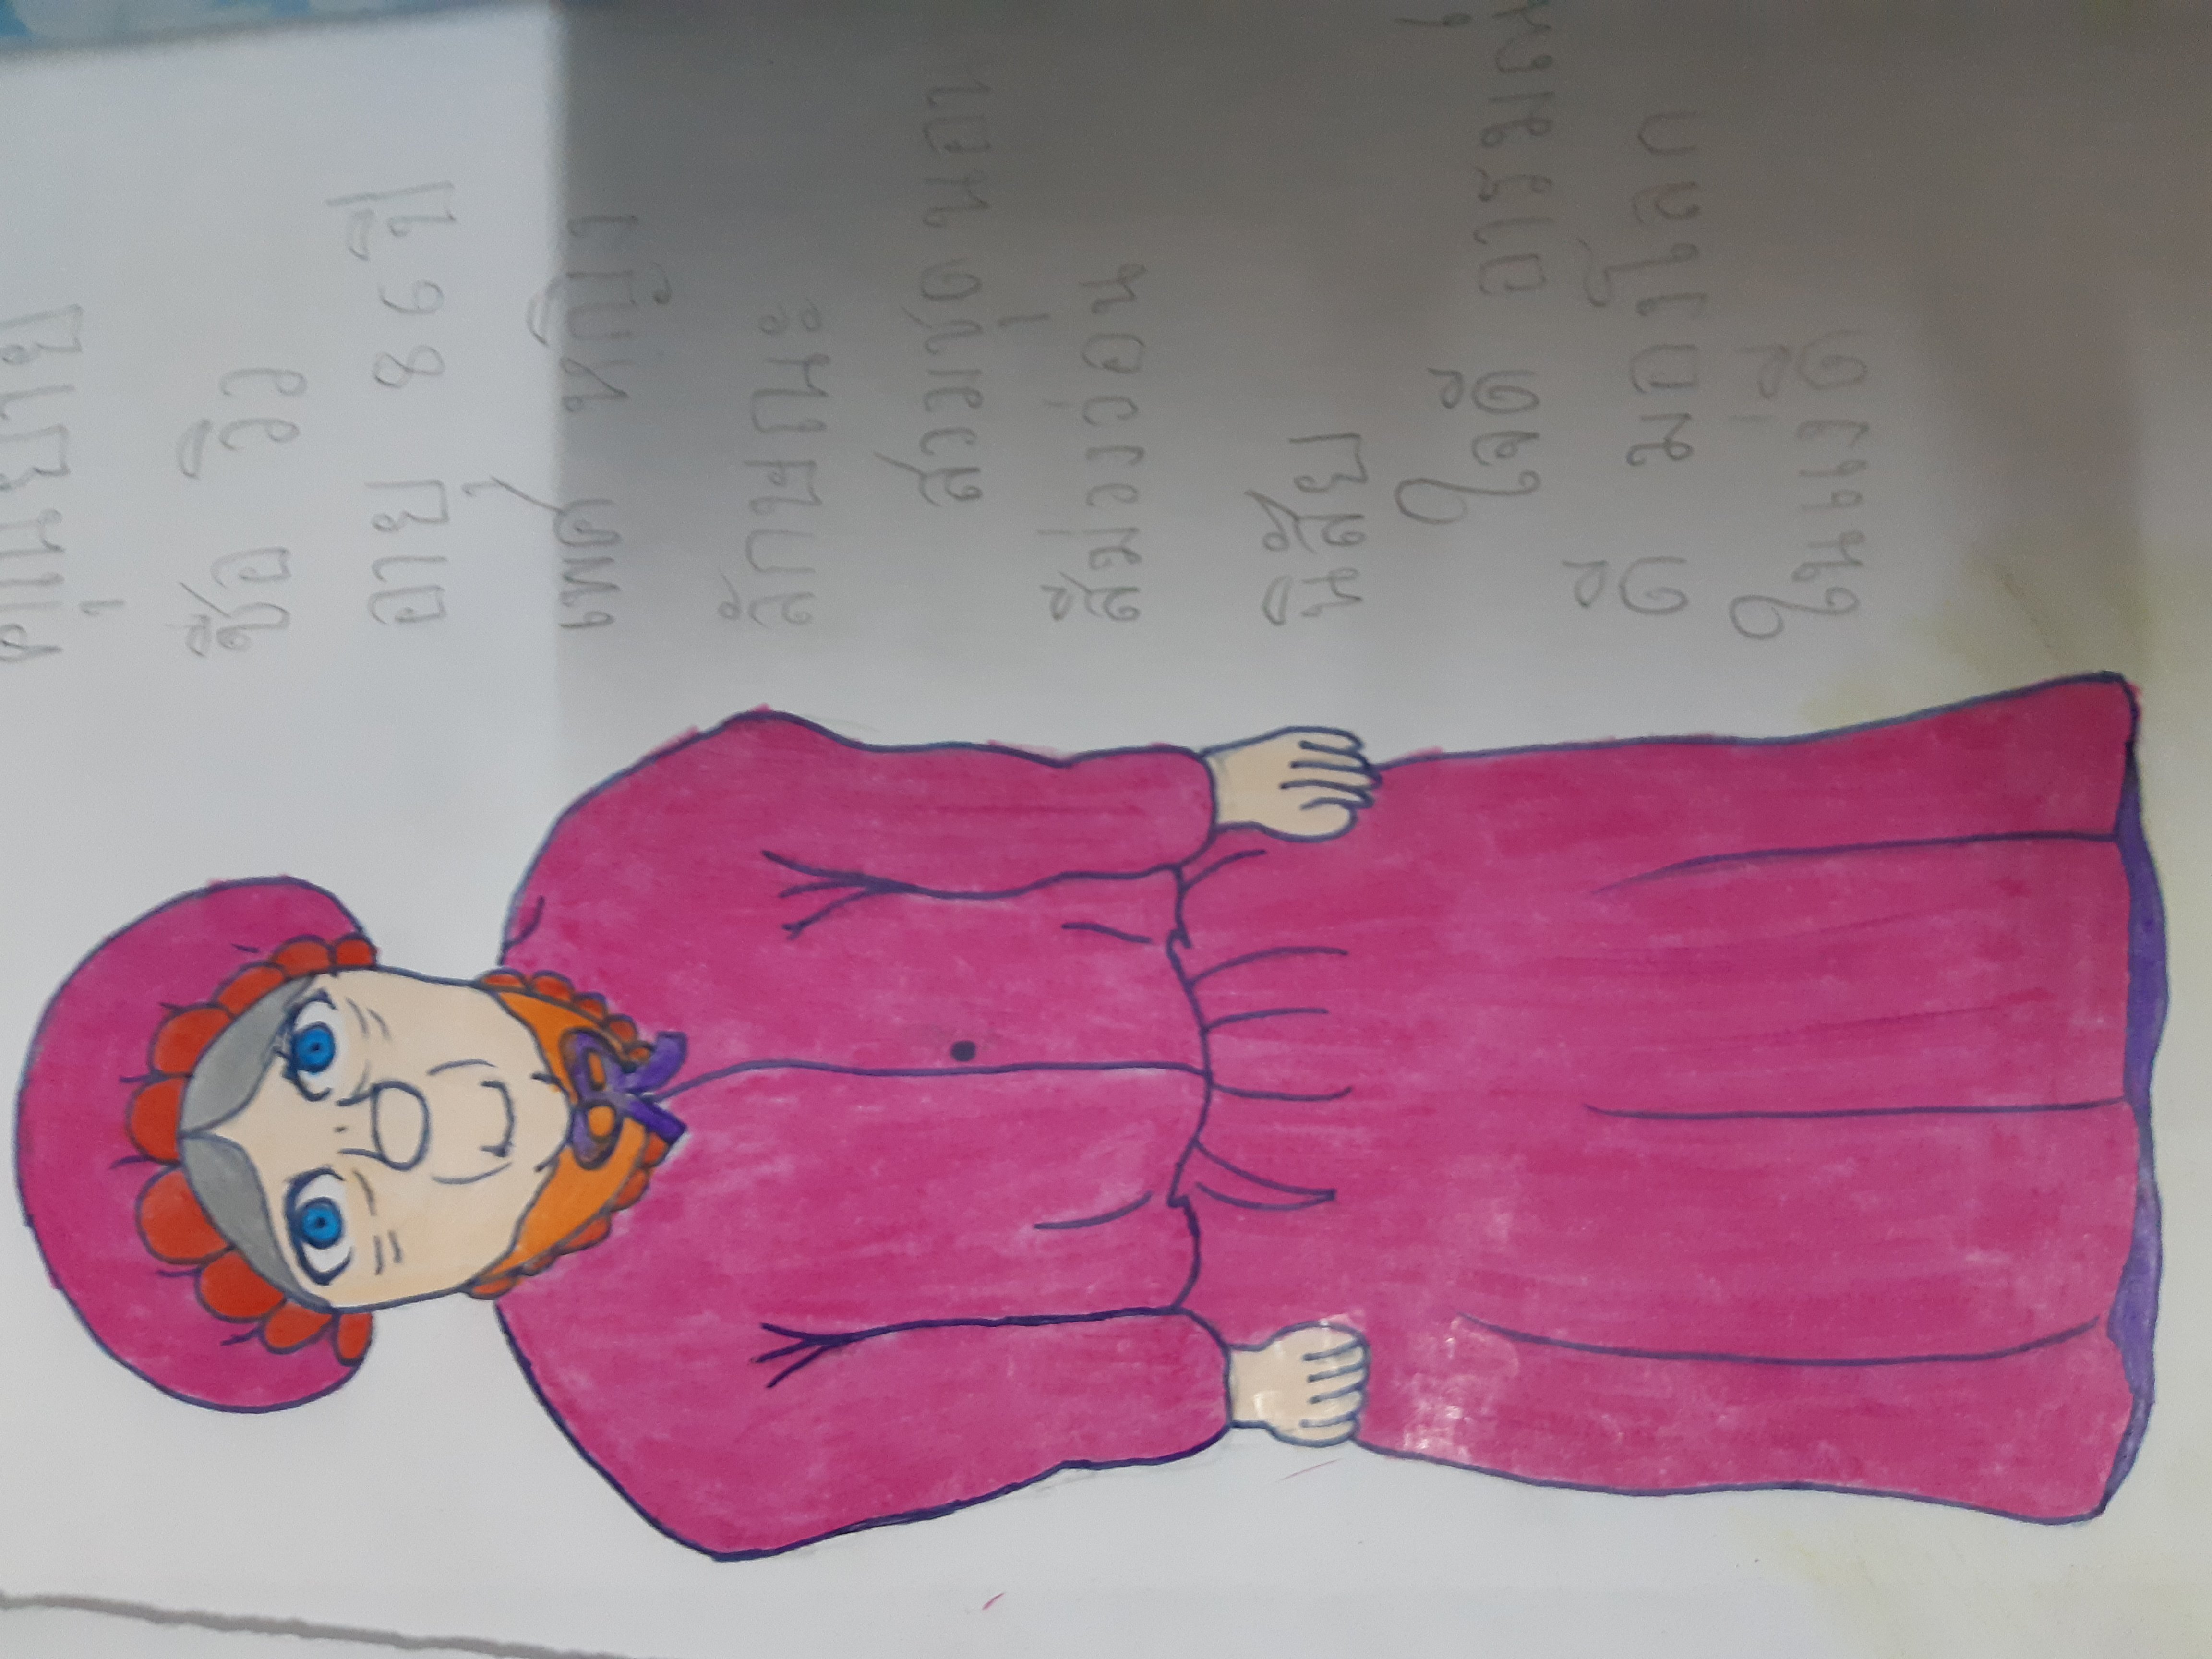 คุณยาย
ชื่อ วิว
อายุ 86 ปี
เพศ หญิง
ลักษณะ
สวมชุดนอน
สีม่วงอ่อน
นิสัย
ใจดี อารมณ์
ดี มองโลก
ในแง่ดี